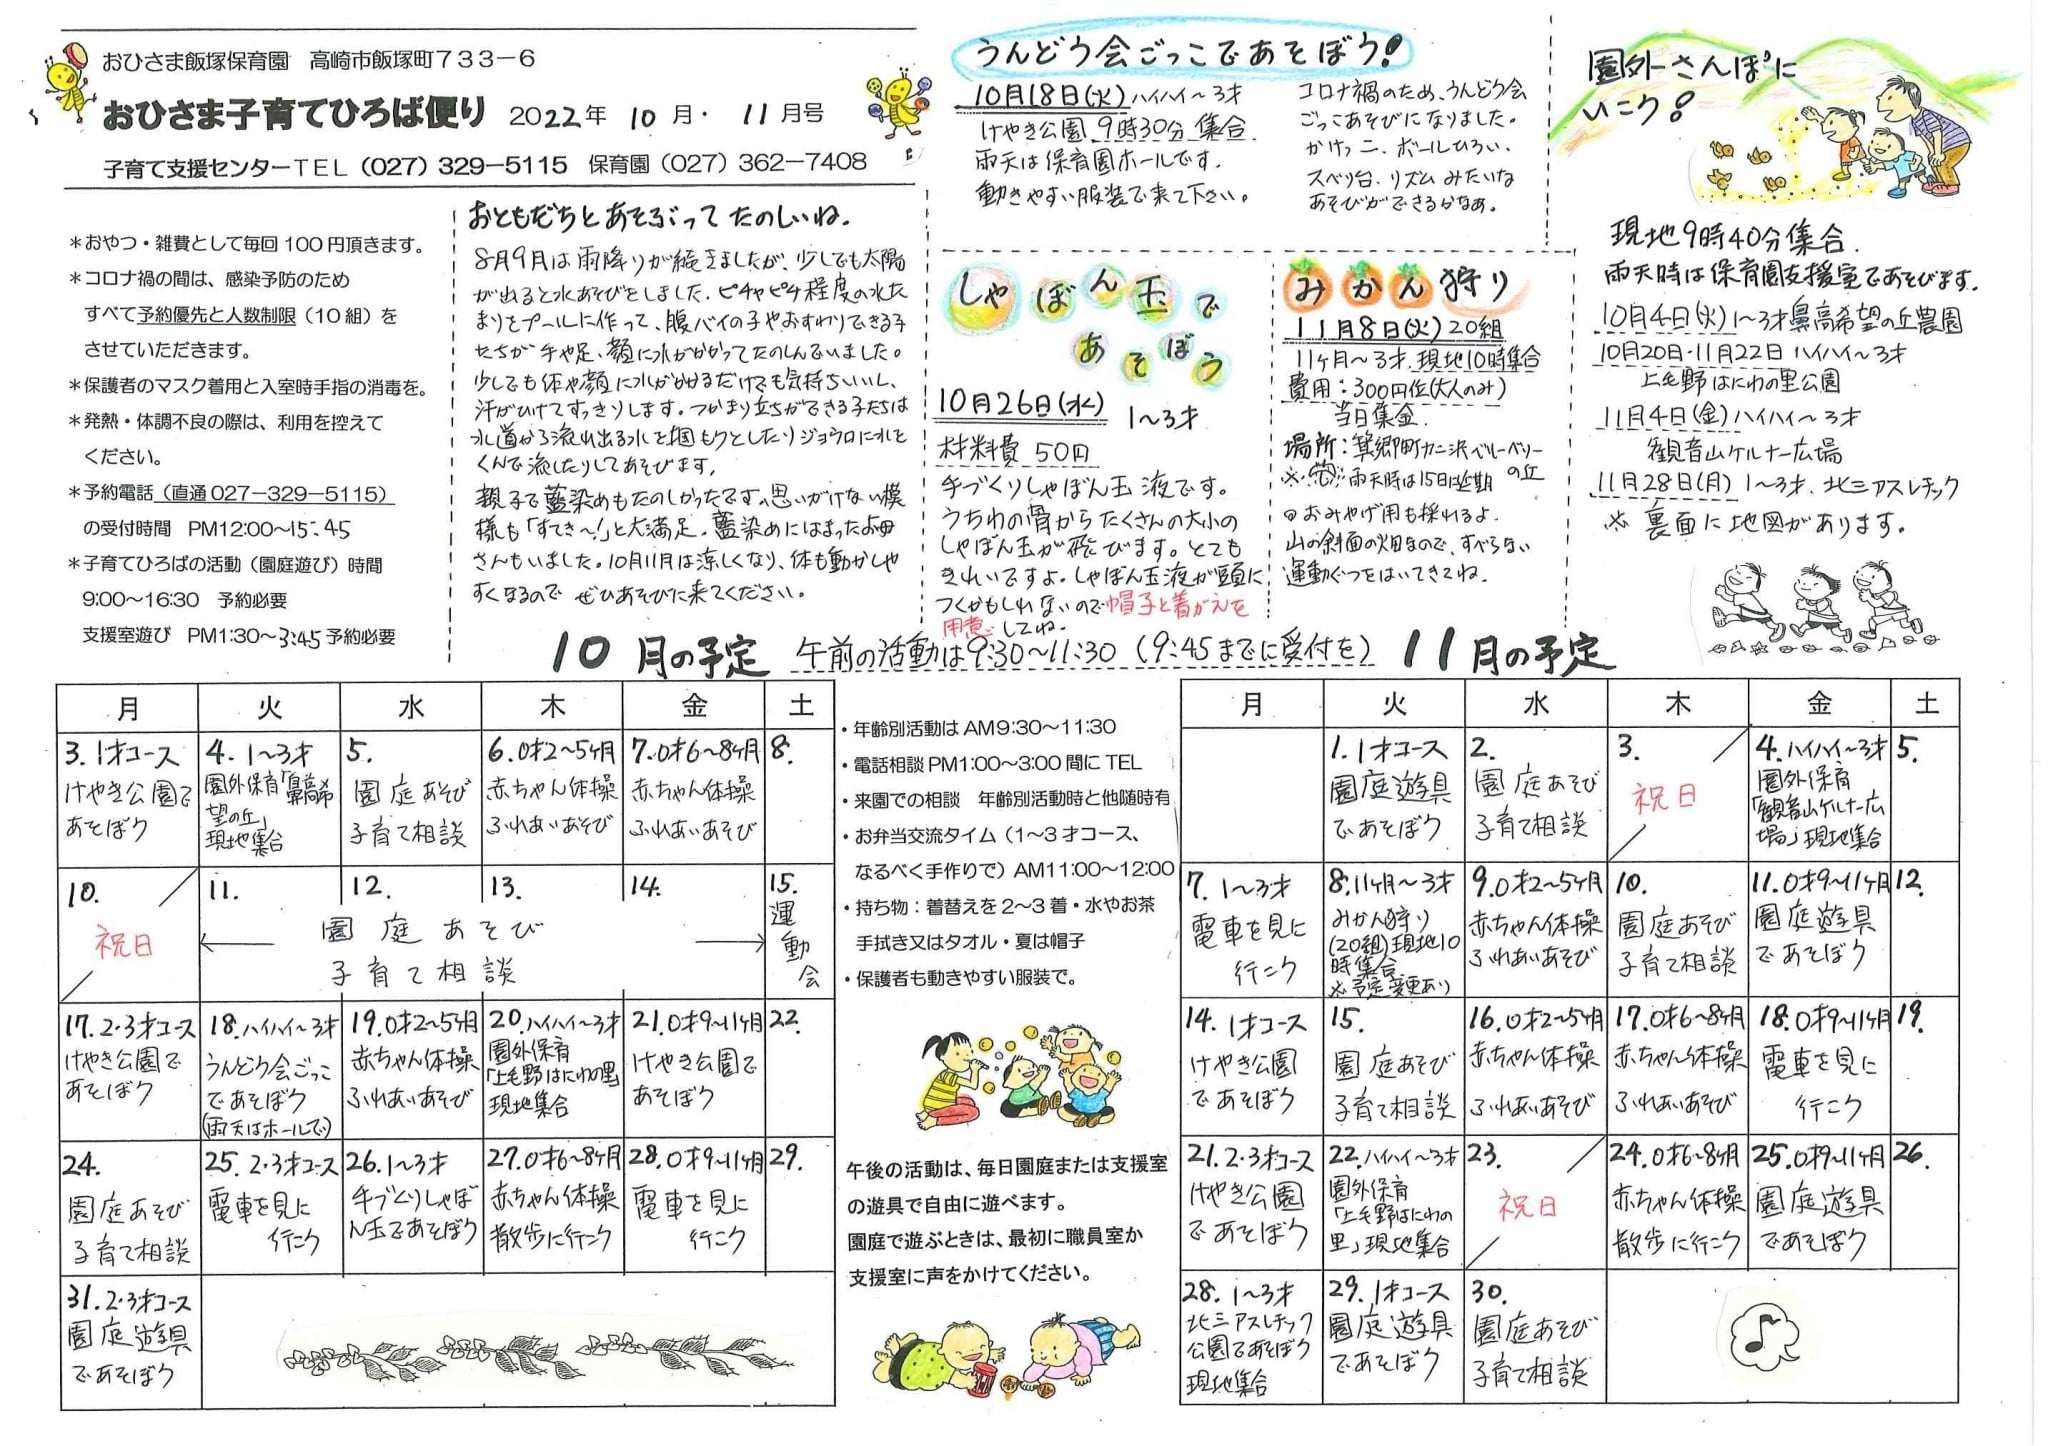 おひさま飯塚保育園 高崎市飯塚町733-6
おひさま子育てひろば便り 2022年 10月・ 11月号
子育て支援センターTEL(027)329-5115 保育園(027)362-7408
*おやつ・雑費として毎回100円頂きます。
*コロナ禍の間は、感染予防のため
すべて予約優先と人数制限(10組)を
させていただきます。
*保護者のマスク着用と入室時手指の消毒を。
*発熱・体調不良の際は、利用を控えて
ください。
*予約電話(直通027-329-5115)
の受付時間 PM12:00~15:45
*子育てひろばの活動(園庭遊び)時間
9:00~16:30 予約必要
支援室遊び PM1:30~3:45予約必要
おともだちとあそぶってたのしいね。
8月9月は雨降りが続きましたが、少しでも太陽
が出ると水あそびをしました。ピチャピチャ程度の水た
まりをプールに作って、腹バイの子やおすわりできる子
たちが手や足、顔に水がかかってたのしんでいました。
少しでも体や顔に水がかかるだけでも気持ちいいし、
汗がひけてすっきりします。つかまり立ちができる子たちは
水道から流れ出る水を掴もうとしたりジョウロに水を
くんで流したりしてあそびます。
親子で藍染めもたのしかったです。思いがけない模
様も「すてき~!」と大満足。藍染めにはまったお母
さんもいました。10月11月は涼しくなり、体も動かしや
すくなるので ぜひあそびに来てください。
うんどう会ごっこであそぼう!
10月18日(火)ハイハイ~3才
けやき公園 9時30分 集合.
雨天は保育園ホールです。
動きやすい服装で来て下さい。
コロナ禍のため、うんどう会
ごっこあそびになりました。
かけっこ、ボールひろい、
スベリ台、リズムみたいな
あそびができるかなぁ。
しゃぼん玉で
あそぼう
10月26日(水) 1~3才
材料費 50円
手づくりしゃぼん玉液です。
うちわの骨からたくさんの大小の
しゃぼん玉が飛びます。とても
きれいですよ。しゃぼん玉液が頭に
つくかもしれないので帽子と着がえを
用意してね。
みかん狩り
11月8日(火)20組
11ヶ月~3才.現地10時集合
費用:300円位(大人のみ)
当日集金.
場所:箕郷町カニ沢ベリーベリー
の丘
※雨天時は15日に延期
◎おみやげ用も採れるよ.
山の斜面の畑なので、すべらない
運動ぐつをはいてきてね.
園外さんぽに
いこう!
現地9時40分集合.
雨天時は保育園支援室であそびます.
10月4日(火)1~3才鼻高希望の丘農園
10月20日・11月22日 ハイハイ~3才
上毛野はにわの里公園
11月4日(金)ハイハイ~3才
観音山ケルナー広場
11月28日(月) 1~3才.北三アスレチック
※裏面に地図があります。
10月の予定 午前の活動は9:30~11:30(9:45までに受付を) 11月の予定
月 火 水 木 金 土
3.1才コース
けやき公園で
あそぼう
4. 1~3才
園外保育「鼻高希
望の丘」
現地集合
5.
園庭あそび
子育て相談
6.0才2~5ヶ月
赤ちゃん体操
ふれあいあそび
7.0才6~8ヶ月
赤ちゃん体操
ふれあいあそび
8.
10.
祝日
11. 12. 13. 14.
園庭あそび
子育て相談
15.
運動会
17.2・3才コース
けやき公園で
あそぼう
18.ハイハイ~3才
うんどう会ごっこ
であそぼう
(雨天はホールで)
19.0才2~5ヶ月
赤ちゃん体操
ふれあいあそび
20.ハイハイ~3才
園外保育
「上毛野はにわの里」
現地集合
21.0才9~11ヶ月
けやき公園で
あそぼう
22.
24.
園庭あそび
子育て相談
25.2・3才コース
電車を見に
行こう
26.1~3才
手づくりしゃぼ
ん玉であそぼう
27.0才6~8ヶ月
赤ちゃん体操
散歩に行こう
28.0才9~11ヶ月
電車を見に
行こう
29.
31.2・3才コース
園庭遊具
であそぼう
・年齢別活動はAM9:30~11:30
・電話相談PM1:00~3:00間にTEL
・来園での相談 年齢別活動時と他随時有
・お弁当交流タイム(1~3才コース、
なるべく手作りで)AM11:00~12:00
・持ち物:着替えを2~3着・水やお茶
手拭き又はタオル・夏は帽子
・保護者も動きやすい服装で。
午後の活動は、毎日園庭または支援室
の遊具で自由に遊べます。
園庭で遊ぶときは、最初に職員室か
支援室に声をかけてください。
月 火 水 木 金 土
1.1才コース
園庭遊具
であそぼう
2.
園庭あそび
子育て相談
3.
祝日
4.ハイハイ~3才
園外保育
「観音山ケルナー広
場」現地集合
5.
7. 1~3才
電車を見に
行こう
8.11ヶ月~3才
みかん狩り
(20組)現地10
時集合
※予定変更あり
9.0才2~5ヶ月
赤ちゃん体操
ふれあいあそび
10.
園庭あそび
子育て相談
11.0才9~11ヶ月
園庭遊具
であそぼう
12.
14.1才コース
けやき公園
であそぼう
15.
園庭あそび
子育て相談
16.0才2~5ヶ月
赤ちゃん体操
ふれあいあそび
17.0才6~8ヶ月
赤ちゃん体操
ふれあいあそび
18.0才9~11ヶ月
電車を見に
行こう
19.
21.2・3才コース
けやき公園
であそぼう
22.ハイハイ~3才
園外保育
「上毛野はにわの
里」現地集合
23.
祝日
24.0才6~8ヶ月
赤ちゃん体操
散歩に行こう
25.0才9~11ヶ月
園庭遊具
であそぼう
26.
28.1~3才
北三アスレチック
公園であそぼう
現地集合
29.1才コース
園庭遊具
であそぼう
30.
園庭あそび
子育て相談